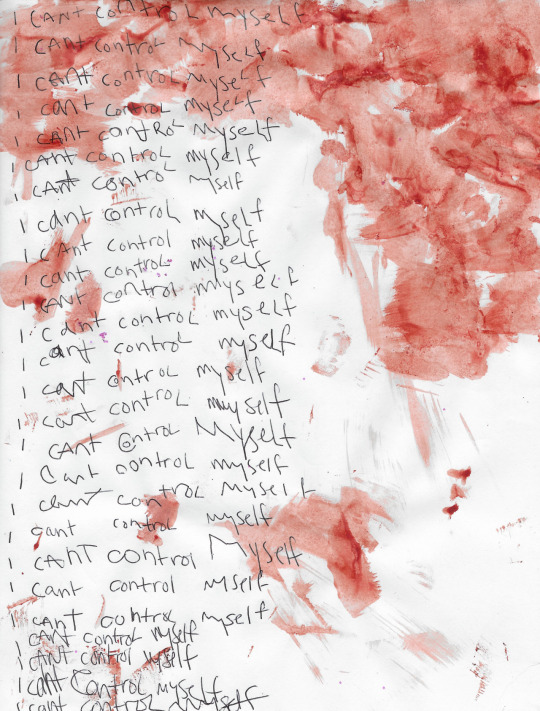 I CANT control Myself
I CANT control Myself
I CANT control Myself
I cant control myself
I CANT contROL Myself
I CANT control myself
CANT control Myself
I cant control myself
I CAnt control myself
I cant control myself
I CANT control myself
I Cant control myself
I cant control myself
I cant control myself
I cant control myself
I CANT Control Myself
I Cant control myself
I cant control Myself
I cant control myself
I CANT control Myself
I cant control myself
I cant control myself
I CANT control myself
I CANT control myself
I cant Control myself
I cant control myself